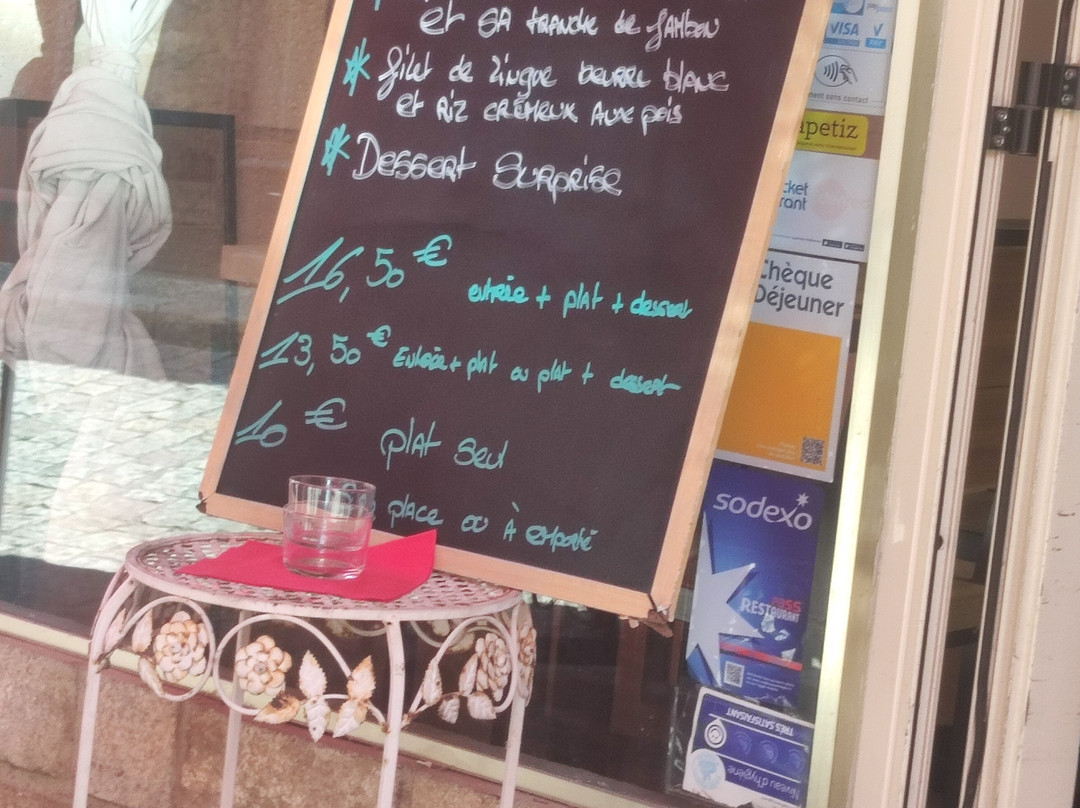 et SA tranche de Jambon
* filet de lingue beurre blanc
et Riz crémeux aux pois
* Dessert Surprise
16,50 €
entrée + plat + dessert
13,50 € Entrée + plat ou plat + dessert
10 € plat seul
place ou à emporté
VISA
ment sans contact
apetiz
cket
rant
Chèque
Déjeuner
sodexo
PASS
RESTAURANT
TRÈS SATISFAISANT
Niveau d'hygiène